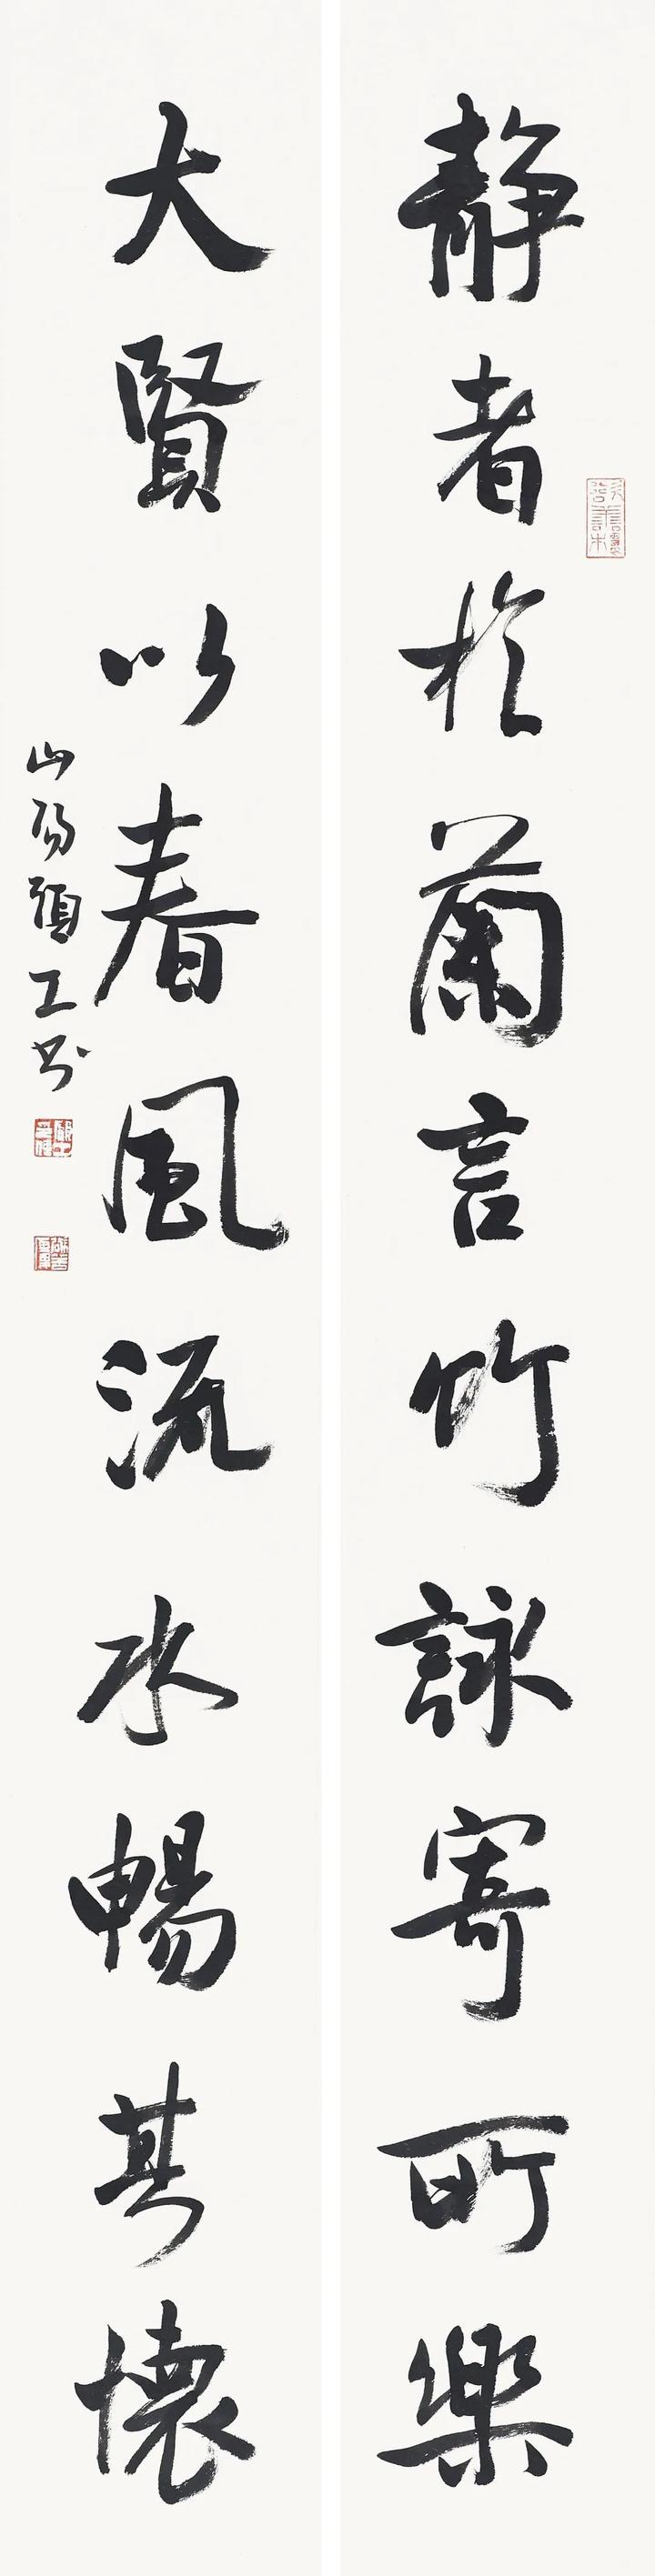 靜者於蘭言竹詠寄所樂
大賢以春風流水暢其懷
山陽顧工书